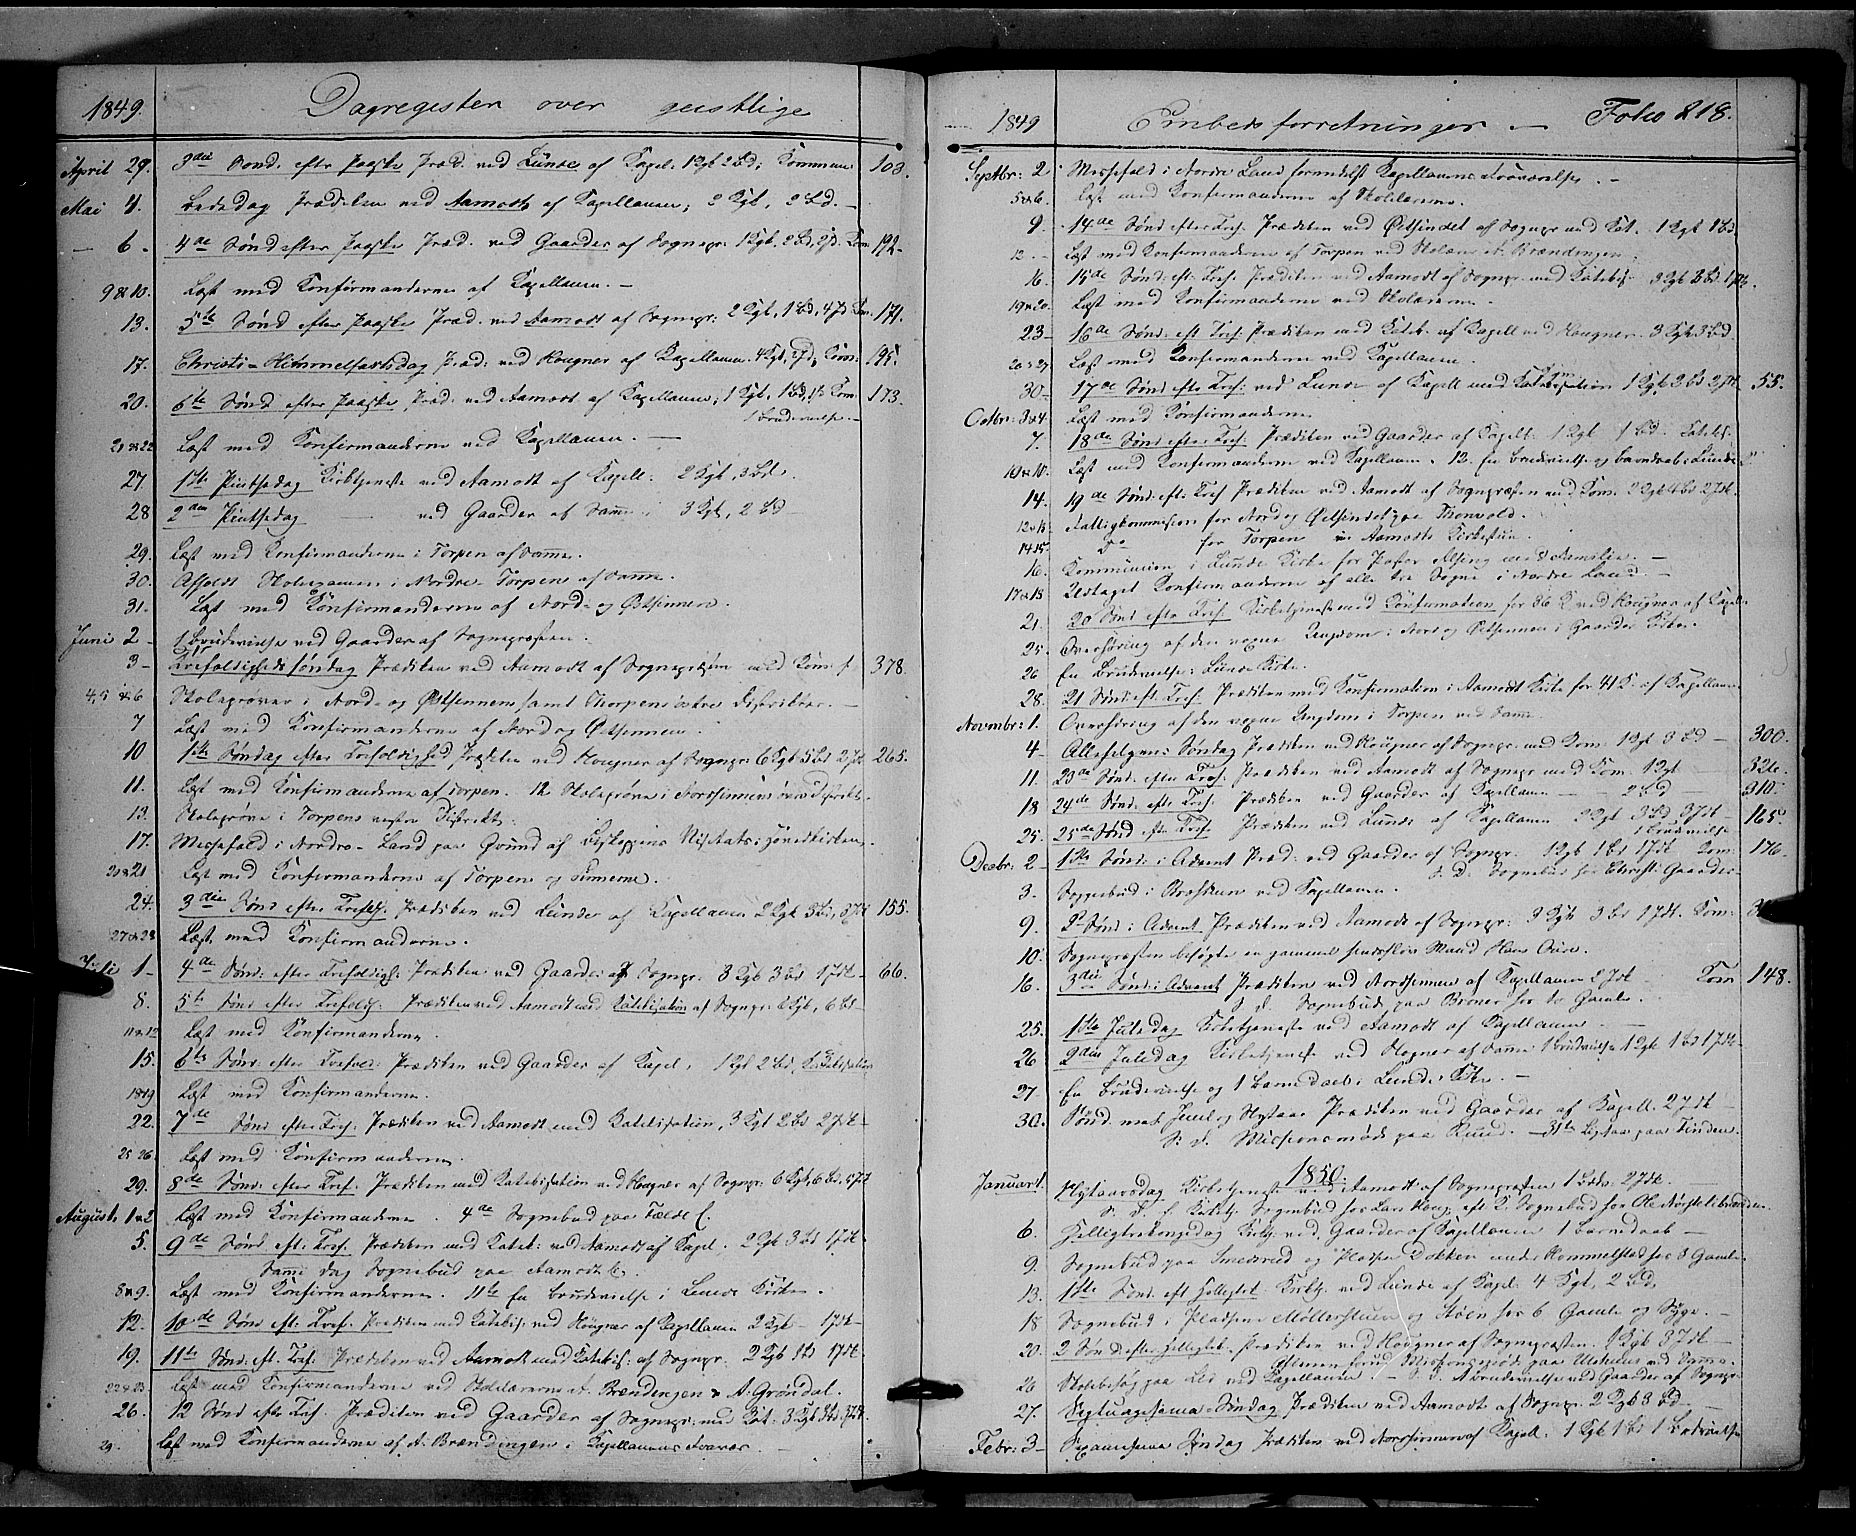 1849. Dagregister over geistlige
April 29. 3die Sønd: efter Paaske Præd. ved Lunde af Kapel: 1 Kgt 2 Bd; Kommun 103.
Mai 4. Bededag Prædiken ved Aamodt af Kapellanen; 2 Kgt, 2 Bd. —
— 6. 4de Sønd efter Paaske Præd. ved Gaarder af Sognepr: 1 Kgt. 2 Bd, Kom 192
9 & 10. Læst med Konfirmanderne af Kapellanen. —
13. 5te Sønd efter Paaske Præd. ved Aamodt af Sognepr: 2 Kgt, 1 Bd, 4 Jd Kom. 171.
17. Christi-Himmelfartsdag Præd: ved Hougner af Kapellanen 4 Kgt, Kom: 195.
20. 6te Sønd efter Paaske Præd. ved Aamodt af Kapellanen; 1 Kgt, 1 Bd, Kom. 173.
1 Brudevielse. —
21 & 22 Læst med Konfirmanderne ved Kapellanen. —
27. 1ste Pintsedag Kirketjeneste ved Aamodt af Kapell: 2 Kgt, 3 Bd.
28 2den Pintsedag — ved Gaarder af Samme 3 Kgt, 2 Bd
29. Læst med Konfirmanderne i Torpen af Samme.
30. Afholdt Skoleexamen i Nordre Torpen af Samme.
31. Læst med Konfirmanderne af Nord- og Østsinnen.
Juni 2 — 1 Brudevielse ved Gaarder af Sognepræsten.
3 — Trefoldigheds søndag Prædiken ved Aamodt af Sognepræsten med Kom: 378.
4, 5 & 6 Skoleprøver i Nord- og Østsinnen samt Thorpens østre Distrikter. —
7 Læst med Konfirmanderne af Nord og Østsinnen.
10 1ste Søndag efter Trefoldighed Prædiken ved Hougner af Sognepr: 6 Kgt 5 Bd 2 Jdk 265.
11. Læst med Konfirmanderne af Torpen. 12 Skoleprøve i Nordsinnens øvre Distrikt.
13. Skoleprøve i Torpens vestre Distrikt.
17. Messefald i Nordre-Land paa Grund af Biskoppens Visitats i Hovedkirken.
20 & 21 Læst med Konfirmanderne af Torpen og Sinnerne.
24. 3die Sønd efter Trefoldh: Prædiken ved Lunde af Kapellanen 2 Kgt 3 Bd, 3 Jdk 155.
27 & 28 Læst med Konfirmanderne.
Juli 1 — 4de Sønd: efter Trefoldigh: Prædiken ved Gaarder af Sognepr: 3 Kgt 3 Bd 1 Jdk — 66.
8. 5te Sønd efter Trefoldgh: Prædiken ved Aamodt med Katekisation af Sognepr: 6 Kgt, 6 Bd —
11 & 12 Læst med Konfirmanderne.
15. 6te Sønd: efter Trefold: Prædiken ved Gaarder af Kapel. 1 Kgt 2 Bd, Katekisation
18 & 19 Læst med Konfirmanderne.
22. 7de Sønd efter Tref: Prædiken ved Aamodt med Katekisation, 3 Kgt 2 Bd 2 Jdk —
25 26. Læst med Konfirmanderne
29. 8de Sønd: efter Tref. Prædiken med Katekisation ved Hougner af Sognepr: 6 Kgt, 6 Bd.
August. 1 & 2 Læst med Konfirmanderne. 4de Sognebud paa
5. 9de Sønd: eft: Tref. Prædiken med Katek: ved Aamodt af Kapel. 2 Kgt 3 Bd 1 Jdk —
Samme dag Sognebud paa Aamodt
8 & 9. Læst med Konfirmanderne. 11te En brudevielse i Lunde Kirke.
12. 10de Sønd eft: Tref. Prædiken med Katekis: ved Hougner af Kapellanen 2 Kgt — 1 Jdk —
19. 11te Sønd: eft. Tref: Prædiken ved Aamodt med Katekis: af Sognepr: 2 Kgt 1 Bd 1 Jdk.
22 & 23. Læst med Konfirmanderne ved Skolelærerne A. Brændingen & A. Grøndal.
26. 12 Sønd efter Tref. Prædiken ved Gaarder af Sognepr: med Kat: 3 Kgt 3 Bd, 3 Jdk.
29. Læst med Konfirmanderne af A. Brændingen i Kapellanens Fravær. —
1849 Embedsforretninger — Folio 218.
Septbr: 2 Messefald i Nordre Land formedelst Kapellanens Fraværelse. —
5 & 6. Læst med Konfirmanderne af Skolelærerne.
9. 14de Sønd efter Tref. Prædiken ved Østsindet af Sognepr med Kat. 1 Kgt 1 Bd
12. — Læst med Konfirmanderne af Torpen ved Skolær A. Brændingen.
16. 15de Sønd: eft. Tref. Prædiken ved Aamodt af Sognepr. med Katekis 3 Kgt 3 Bd 1 Jdk.
19 & 20. Læst med Konfirmanderne ved Skolærerne.
23 — 16de Sønd: eft Tref: Prædiken med Katek. af Kapell ved Hougner. 3 Kgt 3 Bd
26 & 27 Læst med Konfirmanderne ved Kapellanen.
30 — 17de Sønd efter Tref: ved Lunde af Kapell med Katekisation 1 Kgt 3 Bd 2 Jdk 55.
Octbr: 3 & 4. Læst med Konfirmanderne
7. 18de Sønd efter Tref. Prædiken ved Gaarder af Kapell: 1 Kgt 1 Bd. Katekis:
10. Læst med Konfirmanderne ved Kapellanen. 12. En brudevielse og barnedaab i Lunde
14. 19de Sønd: eft. Tref Prædiken ved Aamodt af Sognepræsten med Kom. 2 Kgt 4 Bd 2 Jdk.
12 & 13. Fattigkommission for Nord og Østsindet paa Thonvold.
14 & 15. Do for Torpen i Aamodts Kirkestue.
16. Kommunion i Lunde Kirke for Pastor Alsing med Familie. —
17 & 18 Udtaget Konfirmanderne af alle tre Sogne i Nordre Land. —
21. 20 Sønd efter Tref. Kirketjeneste med Konfirmation for 36 K ved Hougner af Kapell:
25. Overhøring af den voxne Ungdom i Nord og Østsinnen i Gaarder Kirke.
26 En Brudevielse i Lunde Kirke.
28. 21 Sønd: eft. Tref. Prædiken med Konfirmation i Aamodt Kirke for 41 K. af Kapellanen
Novmbr: 1. Overhøring af den voxne Ungdom i Torpen ved Samme.
4 — Allehelgens Søndag Prædiken ved Hougner af Sognepr. med Kom. 1 Kgt 3 Bd — 300.
11. 23de Sønd: efter Tref. Prædiken ved Aamodt af Sognepr med Kom. 1 Kgt — 326.
18 24de Sønd: efter Tref. Prædiken ved Gaarder af Kapellanen — 2 Bd — 310.
25. 25de Sønd efter Tref. Prædiken ved Lunde af Kapellanen 2 Kgt 3 Bd 3 Jdk — 165.
1 Brudevielse
Decbr: 2 — 1ste Sønd: i Advent Præd: ved Gaarder af Sognepr. 1 Kgt 1 Bd 1 Jdk Kom: 176
S. D. Sognebud hos Christ: Gaarder.
3. Sognebud i ved Kapellanen.
9. 2d Sønd: i Advent Prædiken ved Aamodt af Sognepr: 3 Kgt 3 Bd 1 Jdk. Kom:
10. Sognepræsten besøgte en gammel sindssløv Mand Hans
16. 3die Sønd: i Advent Prædiken ved Nordsinnen af Kapellanen 2 Jdk — Kom 148.
S. D. Sognebud paa for to Gamle.
25. 1ste Juledag Kirketjeneste ved Aamodt af Kapellanen. —
26 2den Juledag Kirketjeneste ved Hougner af Samme 1 brudevielse 1 Kgt 1 Bd 1 Jdk —
27 En Brudevielse og 1 Barnedaab i Lunde Kirke. —
30. Sønd. ml. Juul og Nytaar Prædiken ved Gaarder af Kapell. 2 Jdk —
S. D. Missionsmøde paa Ruud. — 31te Ligtale paa Finden.
1850.
Januar 1. Nytaarsdag Kirketjeneste ved Aamodt af Sognepræsten 1 Bd. 2 Jdk.
S. D. f. Kirketj. Sognebud hos Lars Houg. eft K. Sognebud hos Ole Nørstelibrænden.
6. Helligtrekongedag Kirktj. ved Gaarder af Kapellanen 1 barnedaab —
9. Sognebud paa Smedsrud og Pladsen Dokken under Hommelstad for 3 Gamle.
13. 1ste Sønd. eft Helligtrek. Kirketj. ved Lunde af Kapel: 4 Kgt, 2 Bd.
18 Sognebud i Pladsene Møllerstuen og Høen for 6 Gamle og Syge. —
20. 2 Sønd efter Helligtrek. Prædiken ved Hougner af Sognepræsten. 1 Kgt 3 Jdk —
Aftenen forud Missionsmøde paa ved Samme.
26 Skolebesøg paa Lid ved Kapellanen — S. D. 1 brudevielse ved Gaarder af Sognepr
27. Septuagesima-Søndag Prædiken ved Aamodt af Sognepr 2 Kgt 3 Bd —
Febr: 3 — Sexagesima Søndag Prædiken ved Nordsinnen af Kapell: 1 Kgt 1 Bd 1 Brudvielse